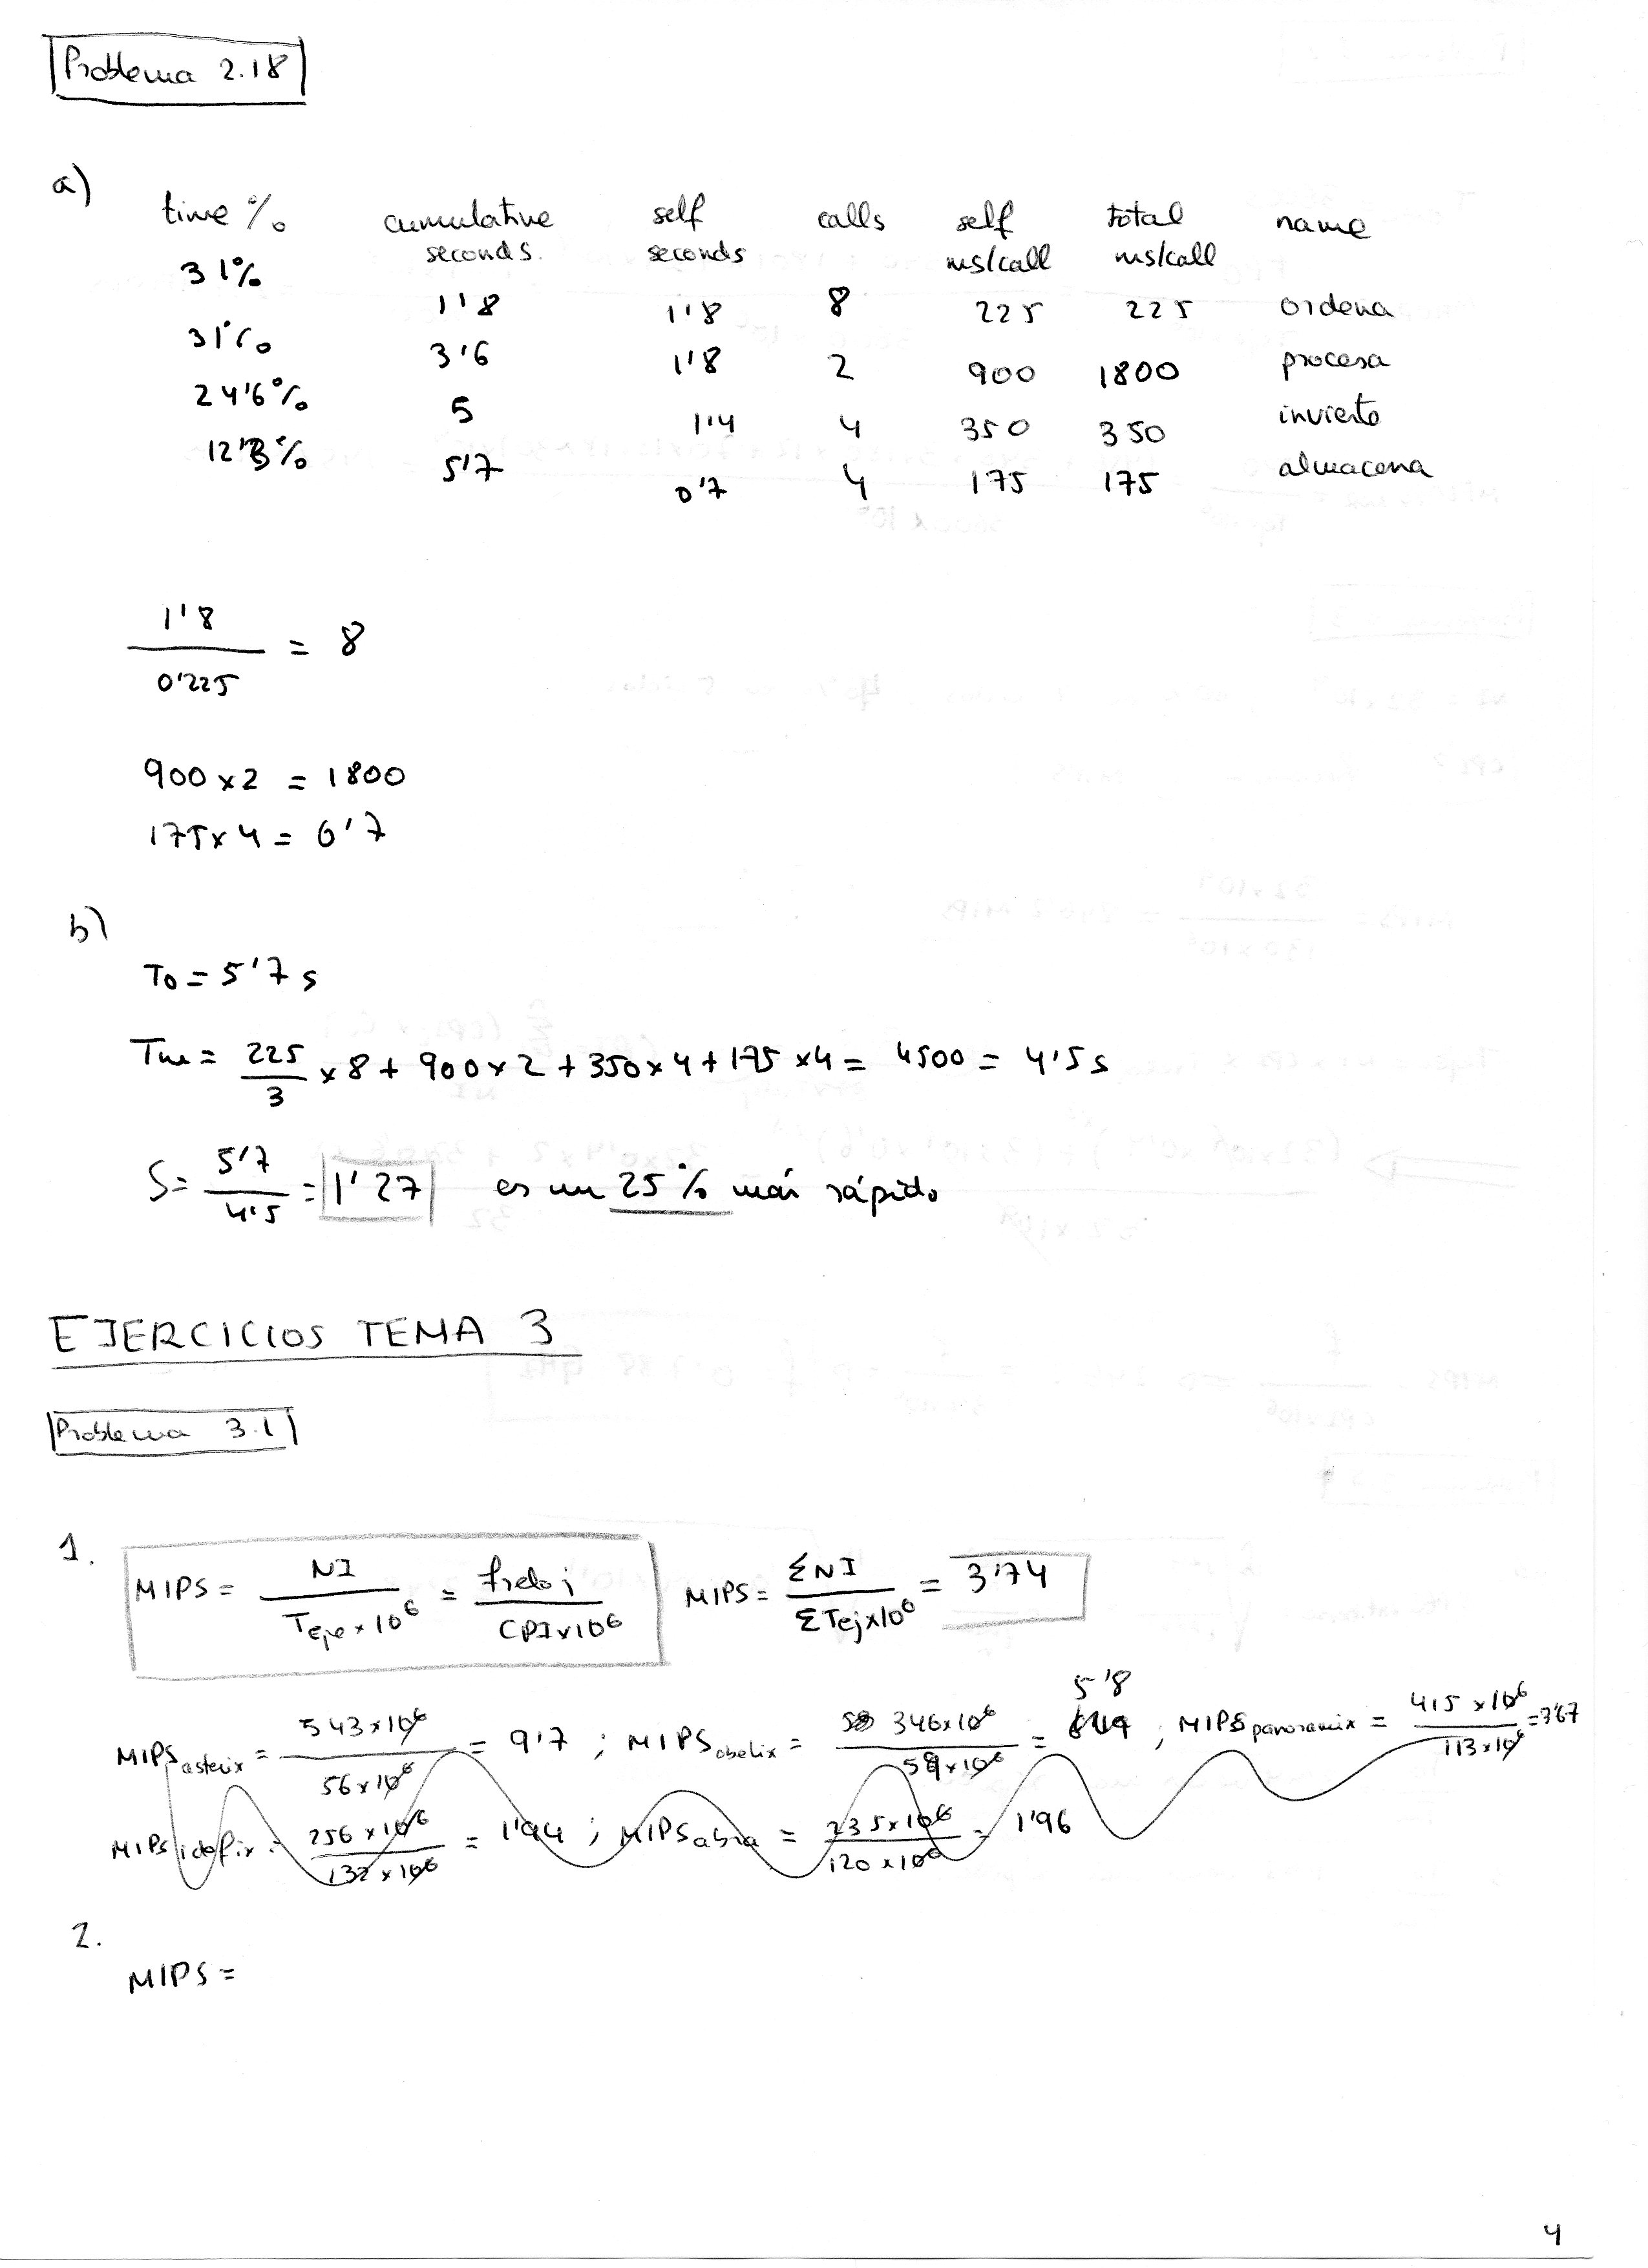 Problema 2.18
a)
time % cumulative seconds. self seconds calls self ms/call total ms/call name
31% 1'8 1'8 8 225 225 ordena
31% 3'6 1'8 2 900 1800 procesa
24'6% 5 1'4 4 350 350 invierte
12'3% 5'7 0'7 4 175 175 almacena
1'8 / 0'225 = 8
900 x 2 = 1800
175 x 4 = 0'7
b)
To = 5'7 s
Tm = 225/3 x 8 + 900 x 2 + 350 x 4 + 175 x 4 = 4500 = 4'5 s
S = 5'7 / 4'5 = 1'27 es un 25% más rápido
EJERCICIOS TEMA 3
Problema 3.1
1.
MIPS = NI / Teje x 10^6 = freloj / CPI x 10^6 MIPS = ΣNI / ΣTej x 10^6 = 3'74
MIPS asterix = 543 x 10^6 / 56 x 10^6 = 9'7 ; MIPS obelix = 346 x 10^6 / 59 x 10^6 = 5'8 ; MIPS panoramix = 415 x 10^6 / 113 x 10^6 = 3'67
MIPS idefix = 256 x 10^6 / 132 x 10^6 = 1'94 ; MIPS abra = 235 x 10^6 / 120 x 10^6 = 1'96
2.
MIPS =
4